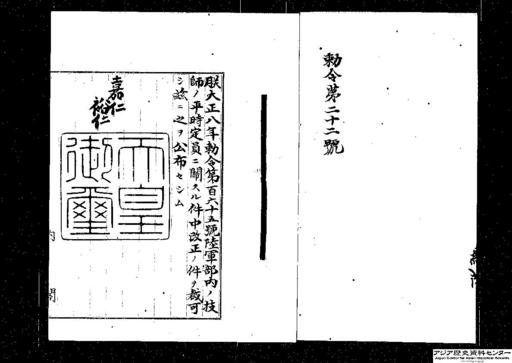 勅令第二十二號
朕大正八年勅令第百六十五號陸軍部內ノ技
師ノ平時定員ニ關スル件中改正ノ件ヲ裁可
シ茲ニ之ヲ公布セシム
嘉仁
裕仁
天皇
御璽
內閣
アジア歴史資料センター
Japan Center for Asian Historical Records